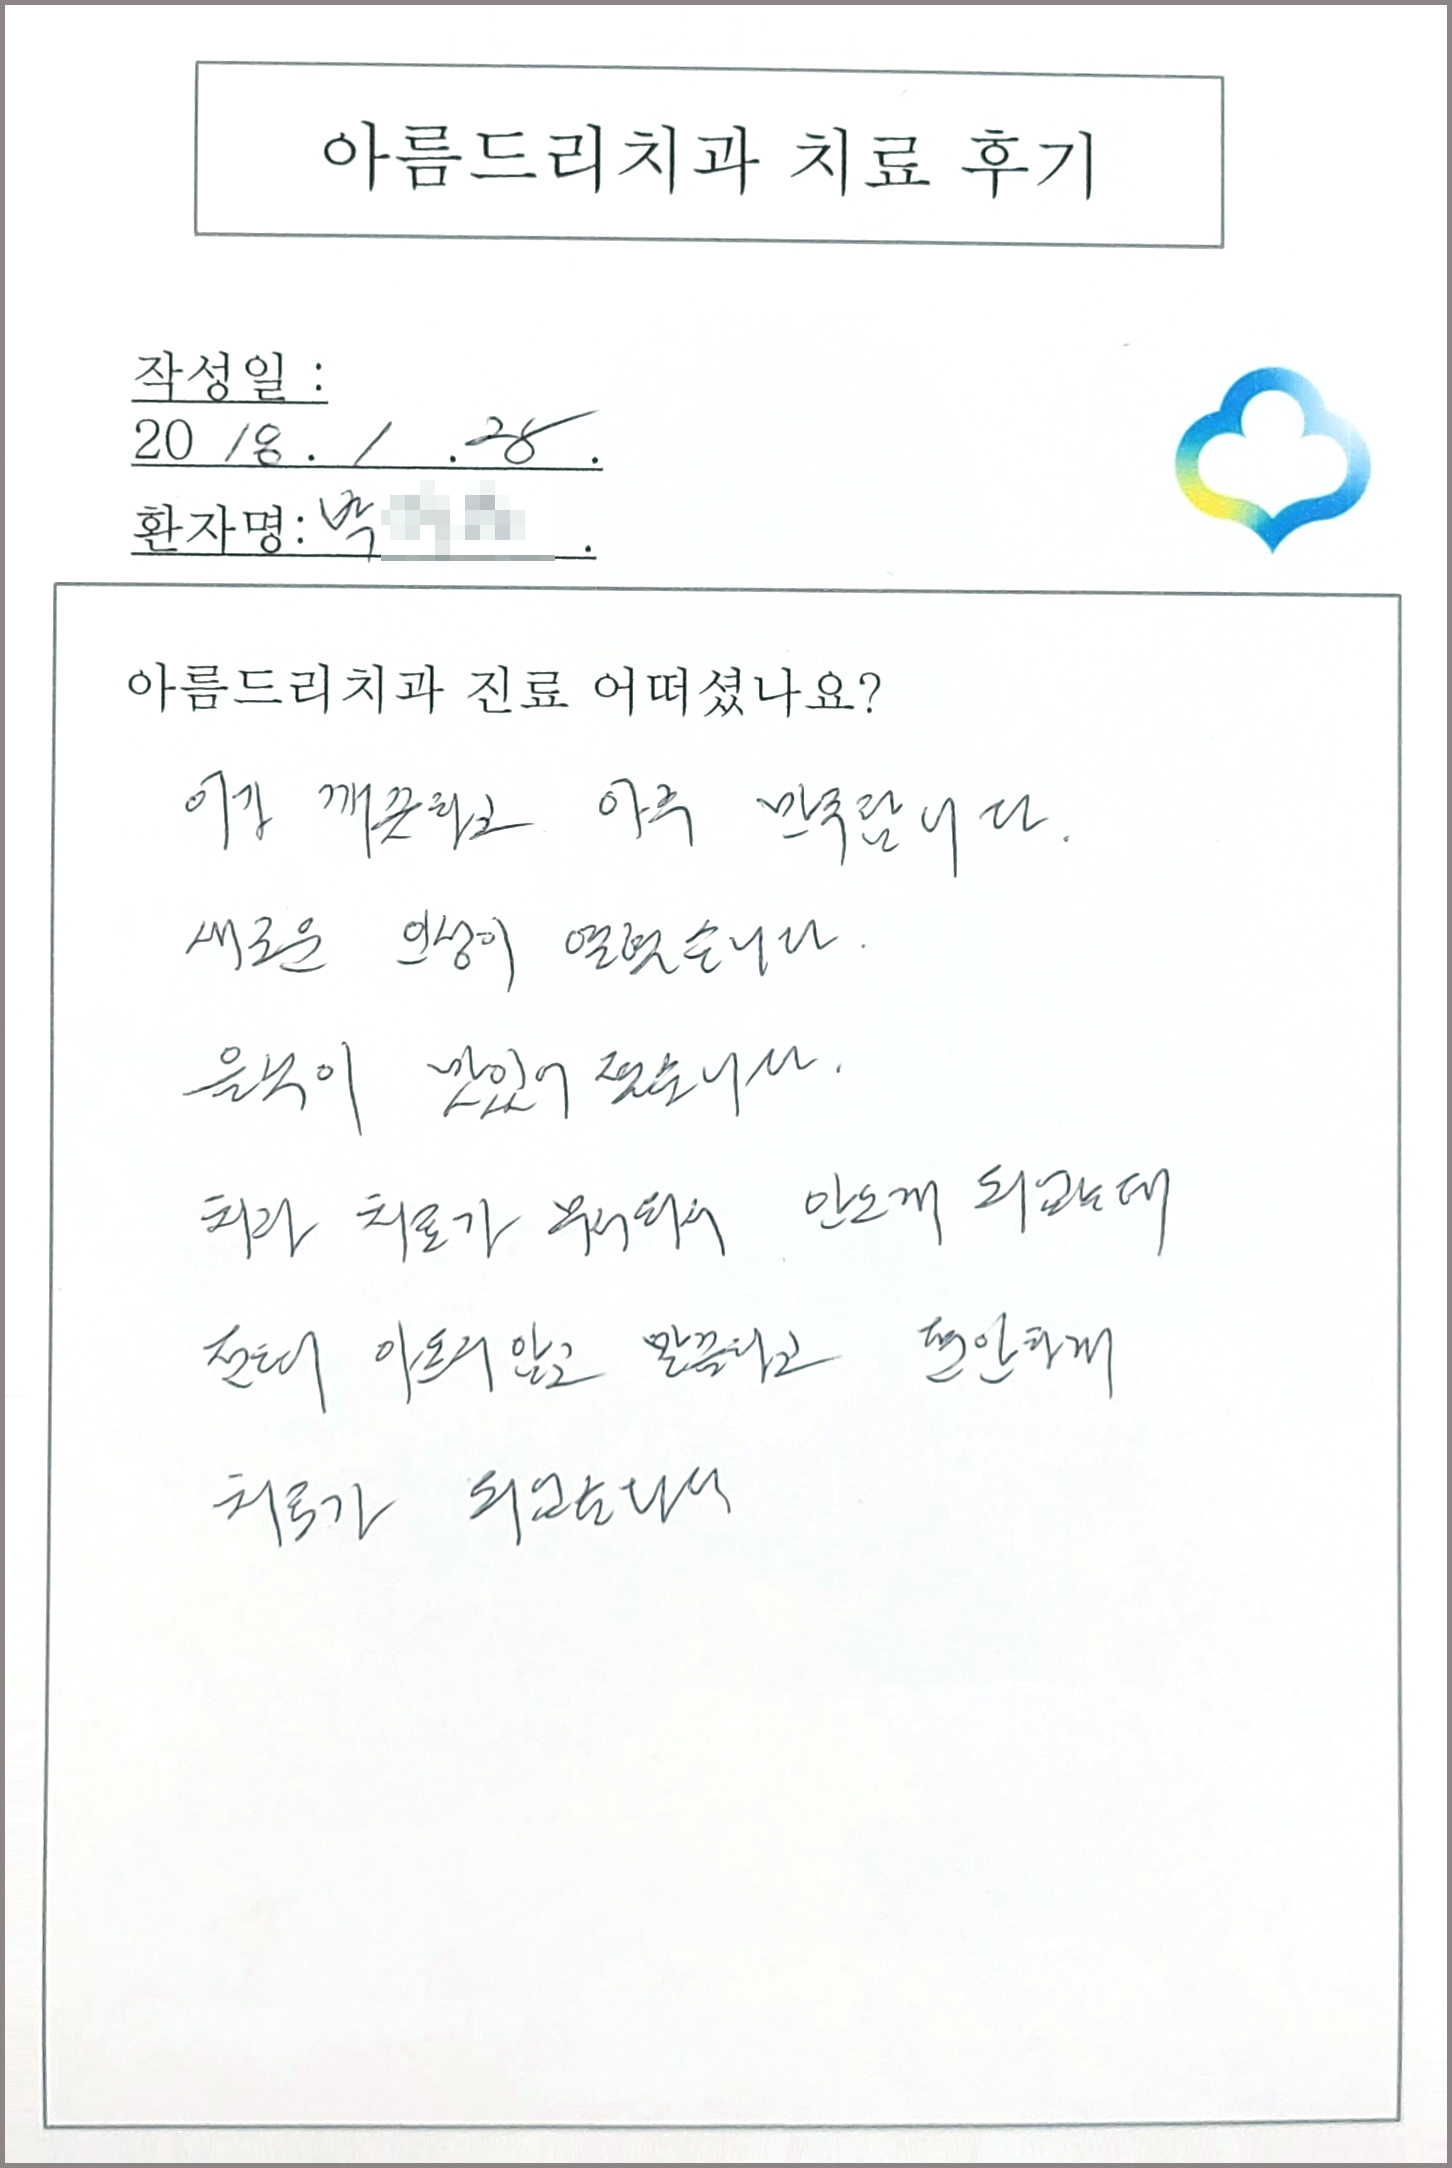 아름드리치과 치료 후기
작성일 :
20 18. 1 .25.
환자명: 박 .
아름드리치과 진료 어떠셨나요?
깨끗하고 아주 만족합니다.
새로운 인생이 열렸습니다.
음식이 맛있어 졌습니다.
치과 치료가 무서워서 안오게 되었는데
전혀 아프지않고 말끔하고 편안하게
치료가 되었습니다